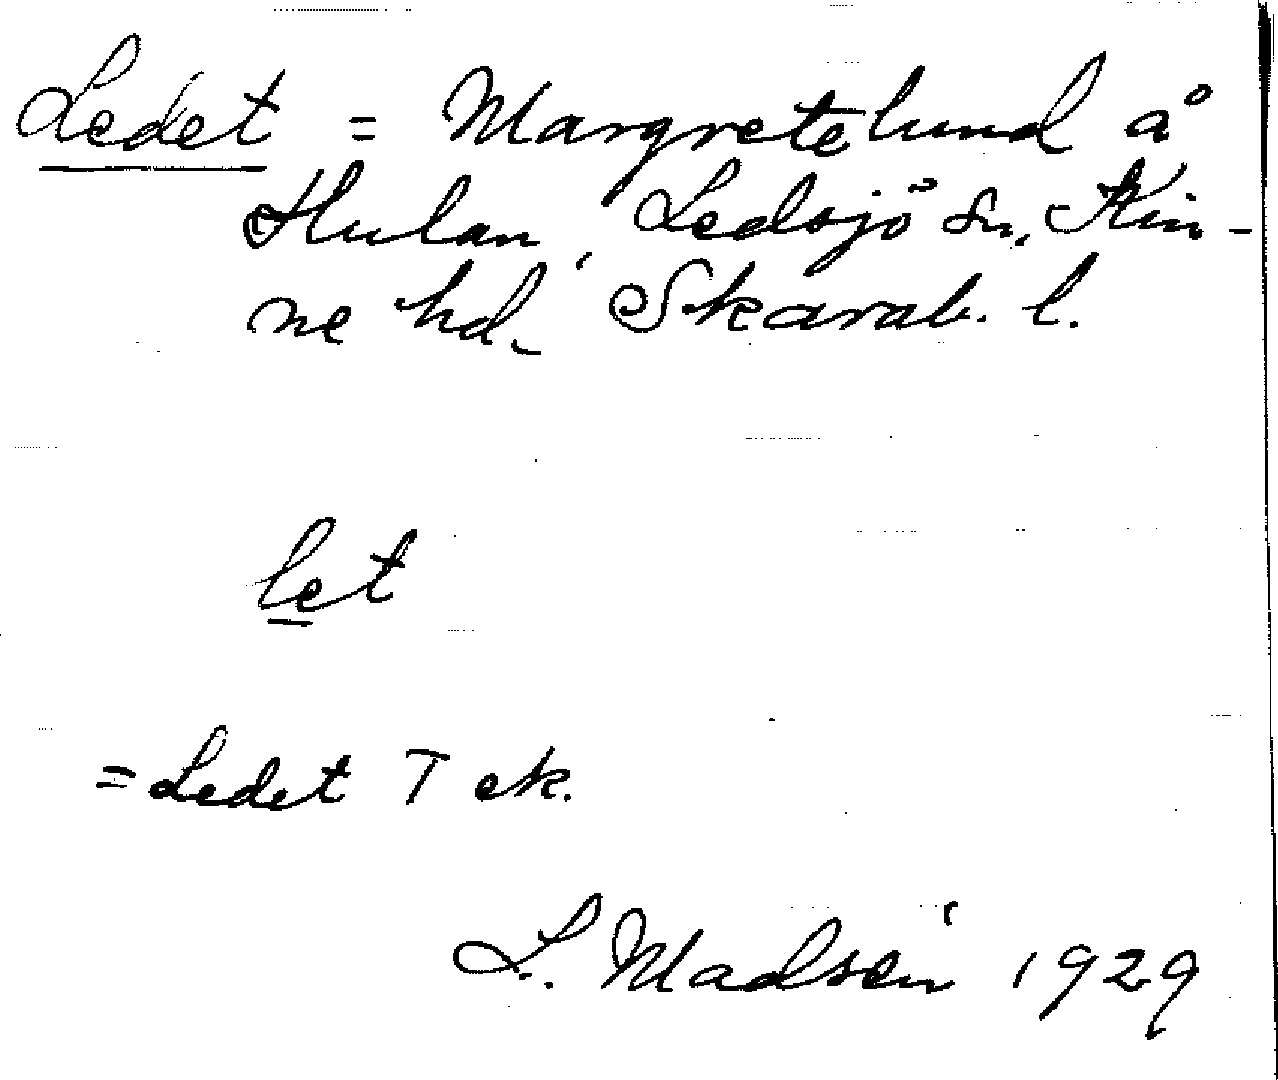 Ledet = Margretelund å
Hulan, Ledsjö sn, Kin-
ne hd, Skarab. l.
let
= Ledet T ek.
L. Madsén 1929